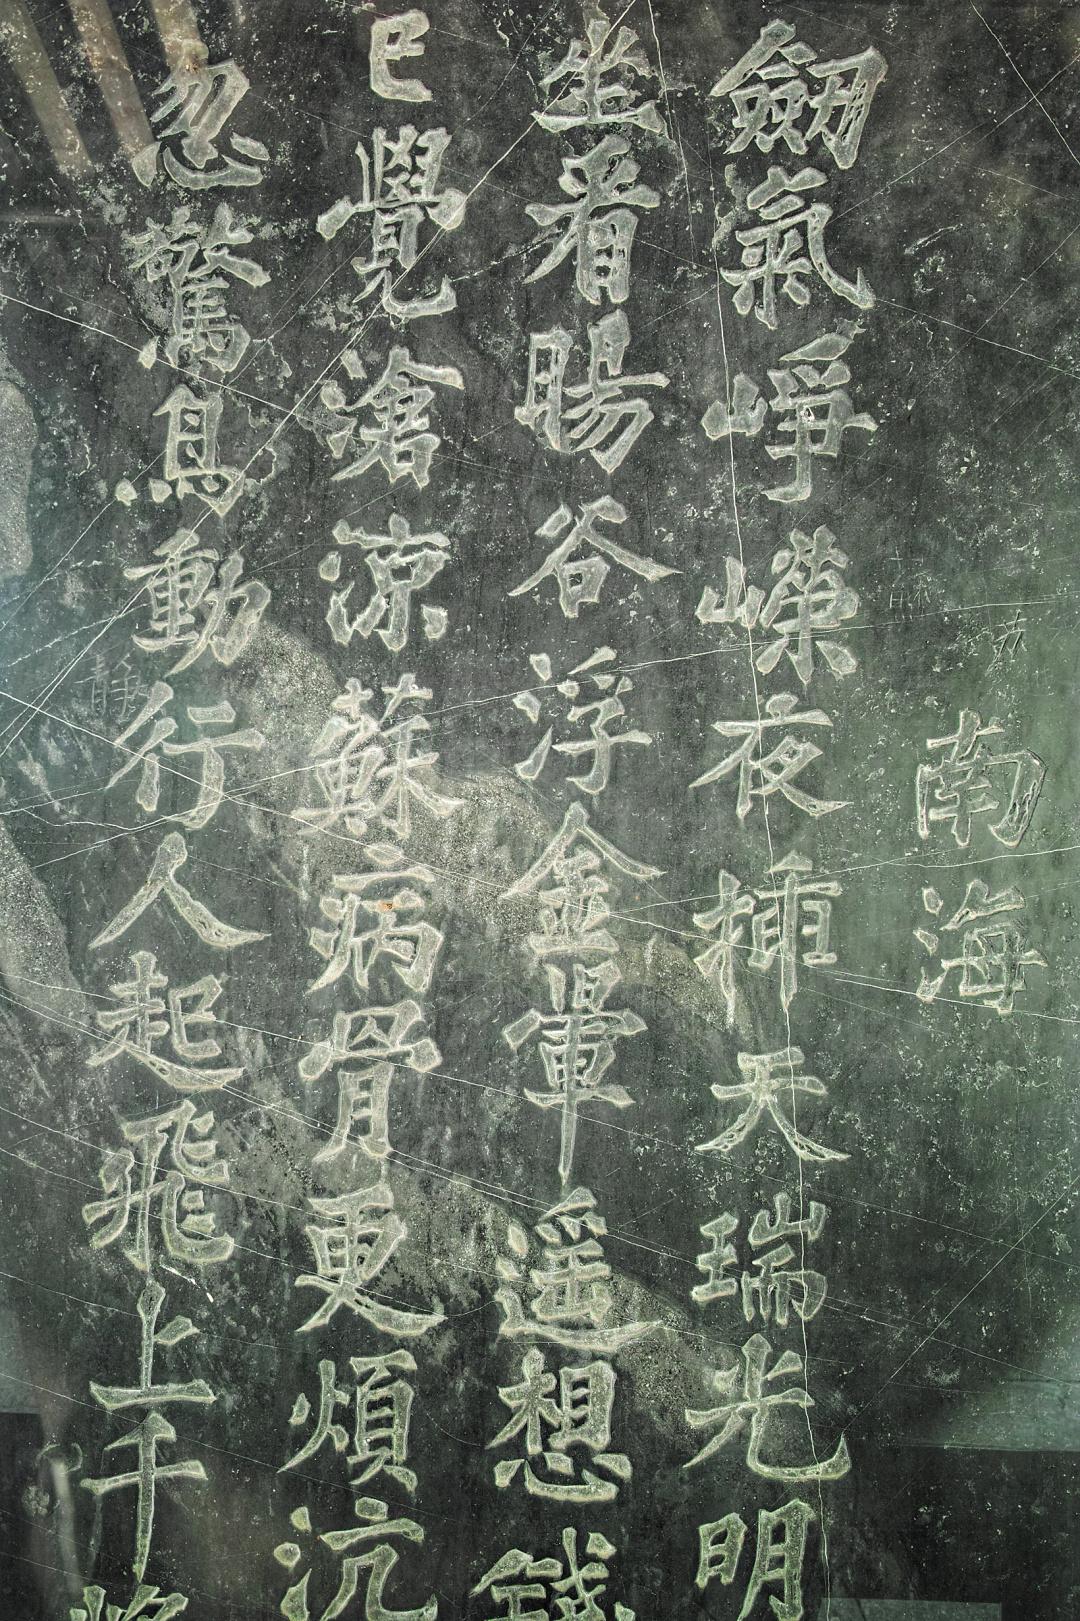 南海
劒氣崢嶸夜挿天瑞光明
坐看暘谷浮金暈遥想錢
已覺滄涼蘇病骨更煩沆
忽驚鳥動行人起飛上千